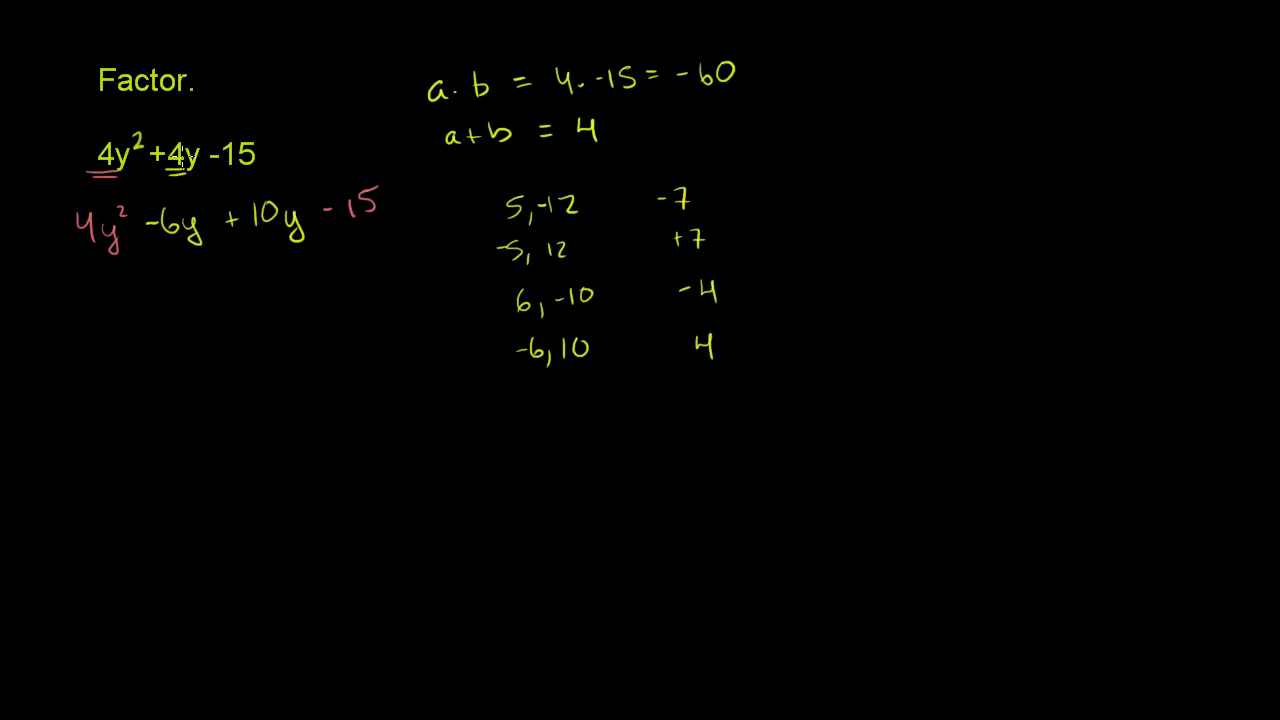 Factor.
4y² +4y -15
4y² -6y + 10y - 15
a · b = 4 · -15 = -60
a + b = 4
5, -12 -7
-5, 12 +7
6, -10 -4
-6, 10 4